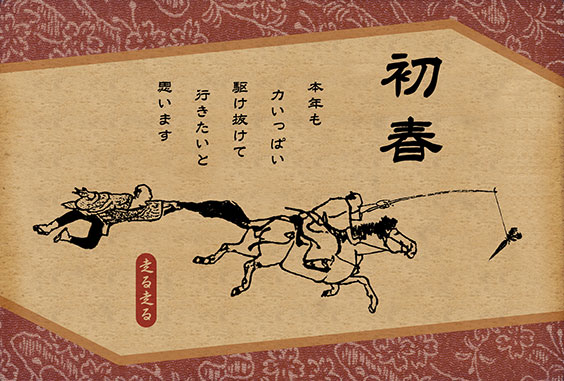 初春
本年も
力いっぱい
駆け抜けて
行きたいと
思います
走る走る